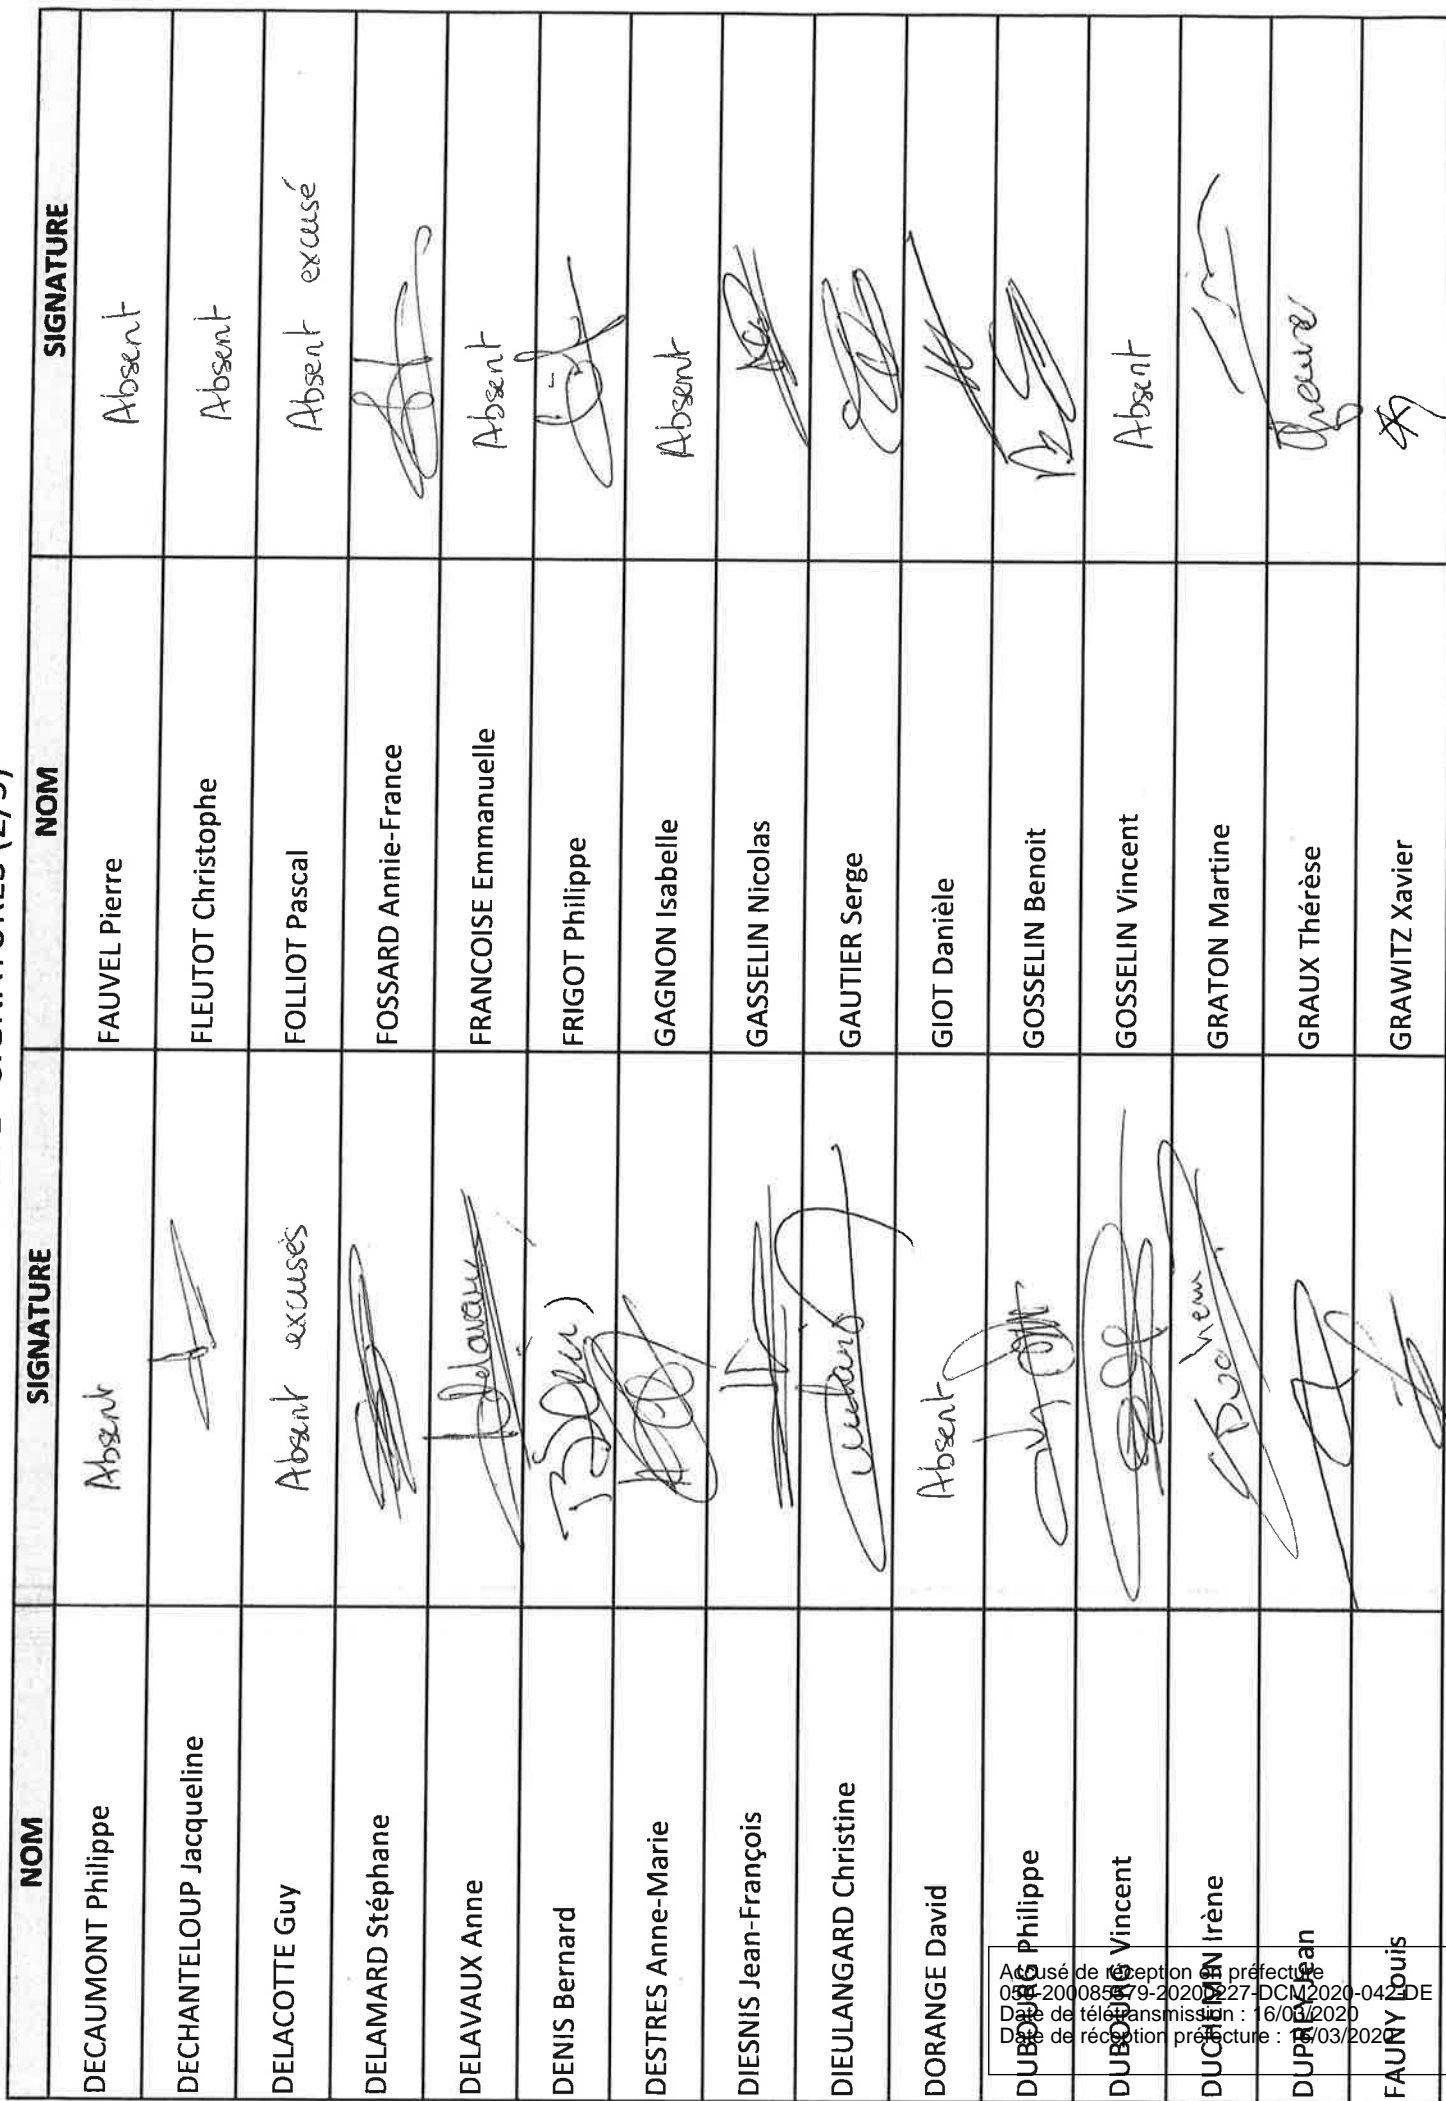 SIGNATURES (2/5)
NOM SIGNATURE NOM SIGNATURE
DECAUMONT Philippe Absent FAUVEL Pierre Absent
DECHANTELOUP Jacqueline FLEUTOT Christophe Absent
DELACOTTE Guy Absent excusés FOLLIOT Pascal Absent excusé
DELAMARD Stéphane FOSSARD Annie-France
DELAVAUX Anne Delavaux FRANCOISE Emmanuelle Absent
DENIS Bernard FRIGOT Philippe
DESTRES Anne-Marie GAGNON Isabelle Absent
DIESNIS Jean-François GASSELIN Nicolas
DIEULANGARD Christine GAUTIER Serge
DORANGE David Absent GIOT Danièle
DUBOURG Philippe GOSSELIN Benoit
DUBOURG Vincent GOSSELIN Vincent Absent
DUCHEMIN Irène GRATON Martine
DUPREY Jean GRAUX Thérèse
FAUNY Louis GRAWITZ Xavier
Accusé de réception en préfecture
050-200085579-20200227-DCM2020-042-DE
Date de télétransmission : 16/03/2020
Date de réception préfecture : 16/03/2020